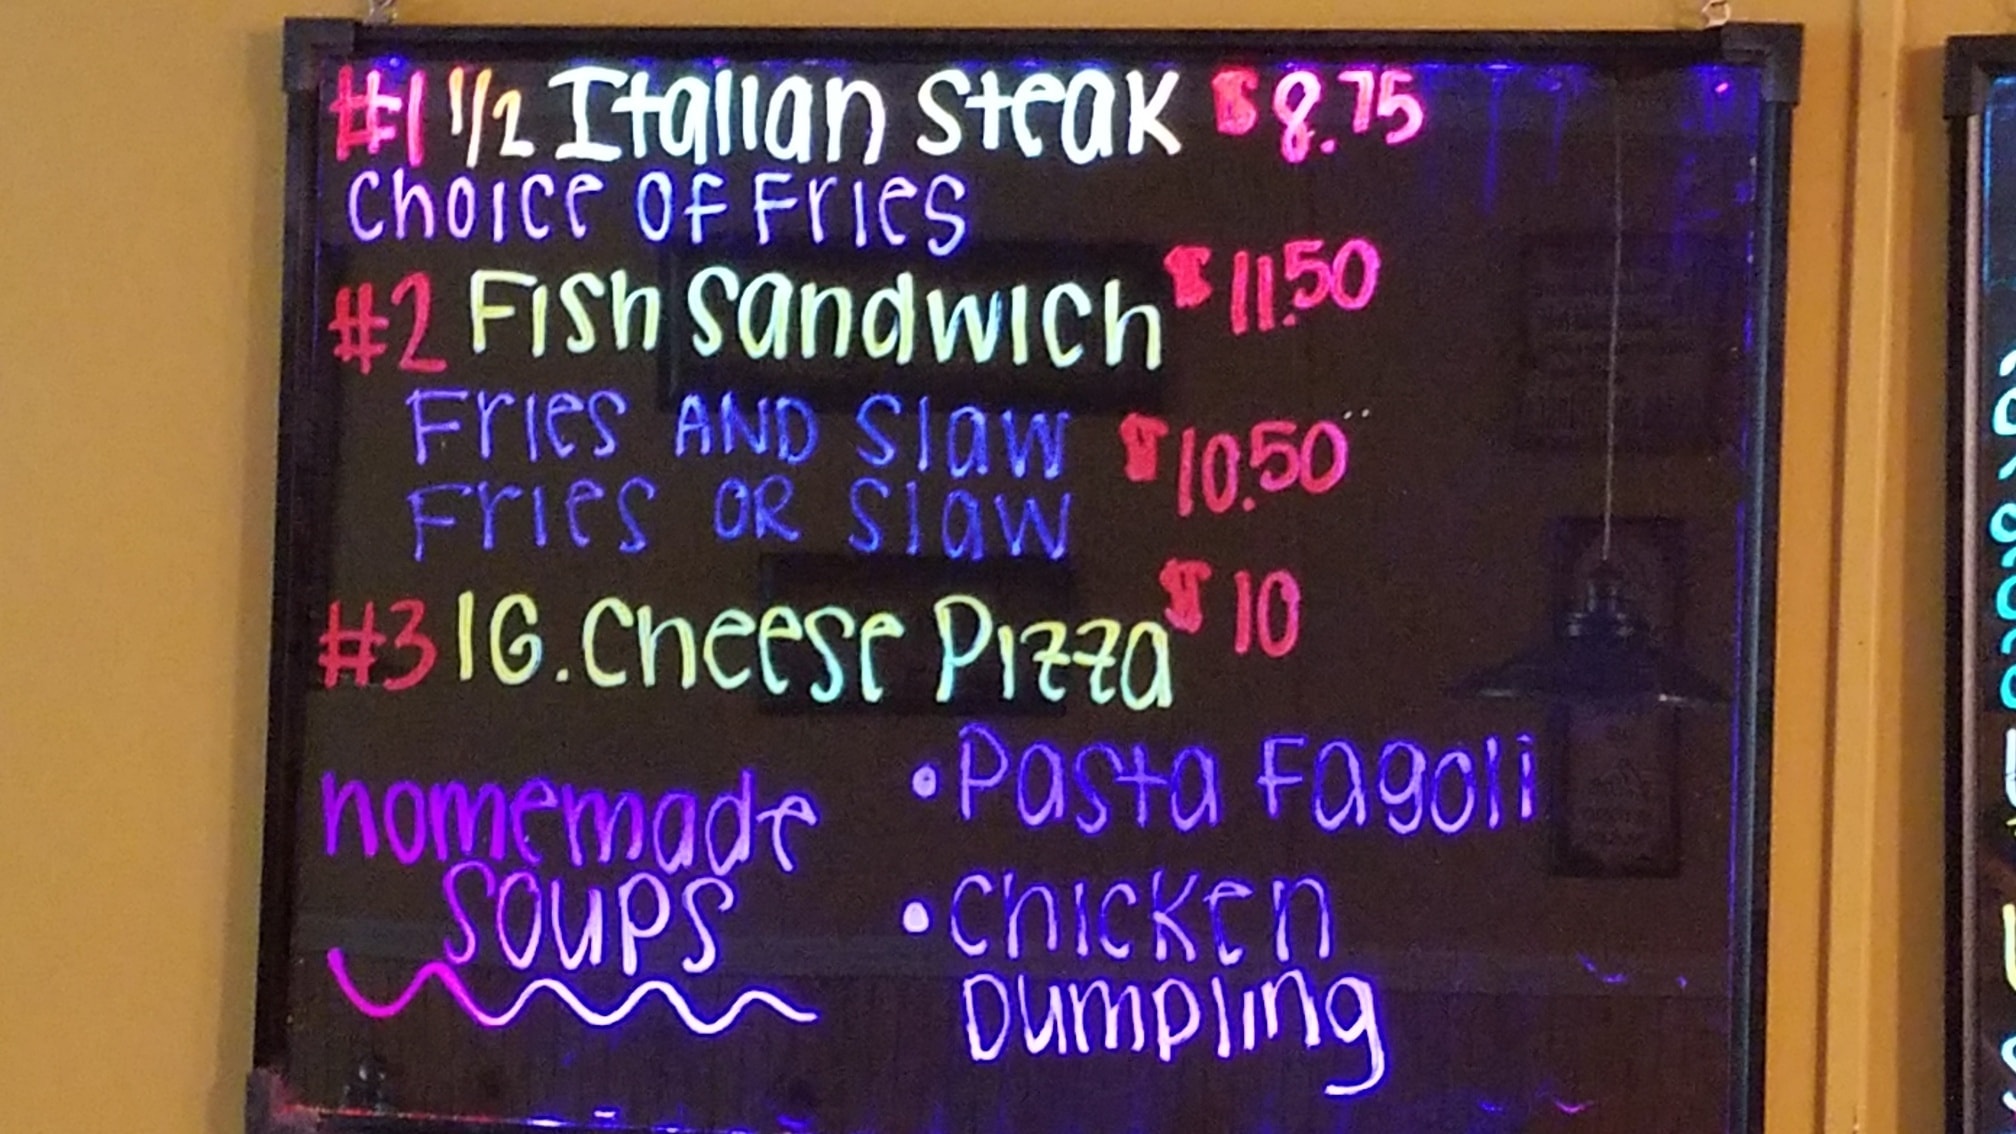 #1 1/2 Italian Steak $8.75
Choice Of Fries
#2 Fish Sandwich $11.50
Fries AND Slaw $10.50
Fries OR Slaw
#3 1G. Cheese Pizza $10
homemade
soups
• Pasta Fagoli
• Chicken
Dumpling